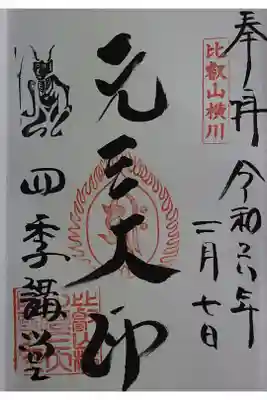 奉拝
比叡山横川
令和六年
二月七日
元三大师
四季講堂